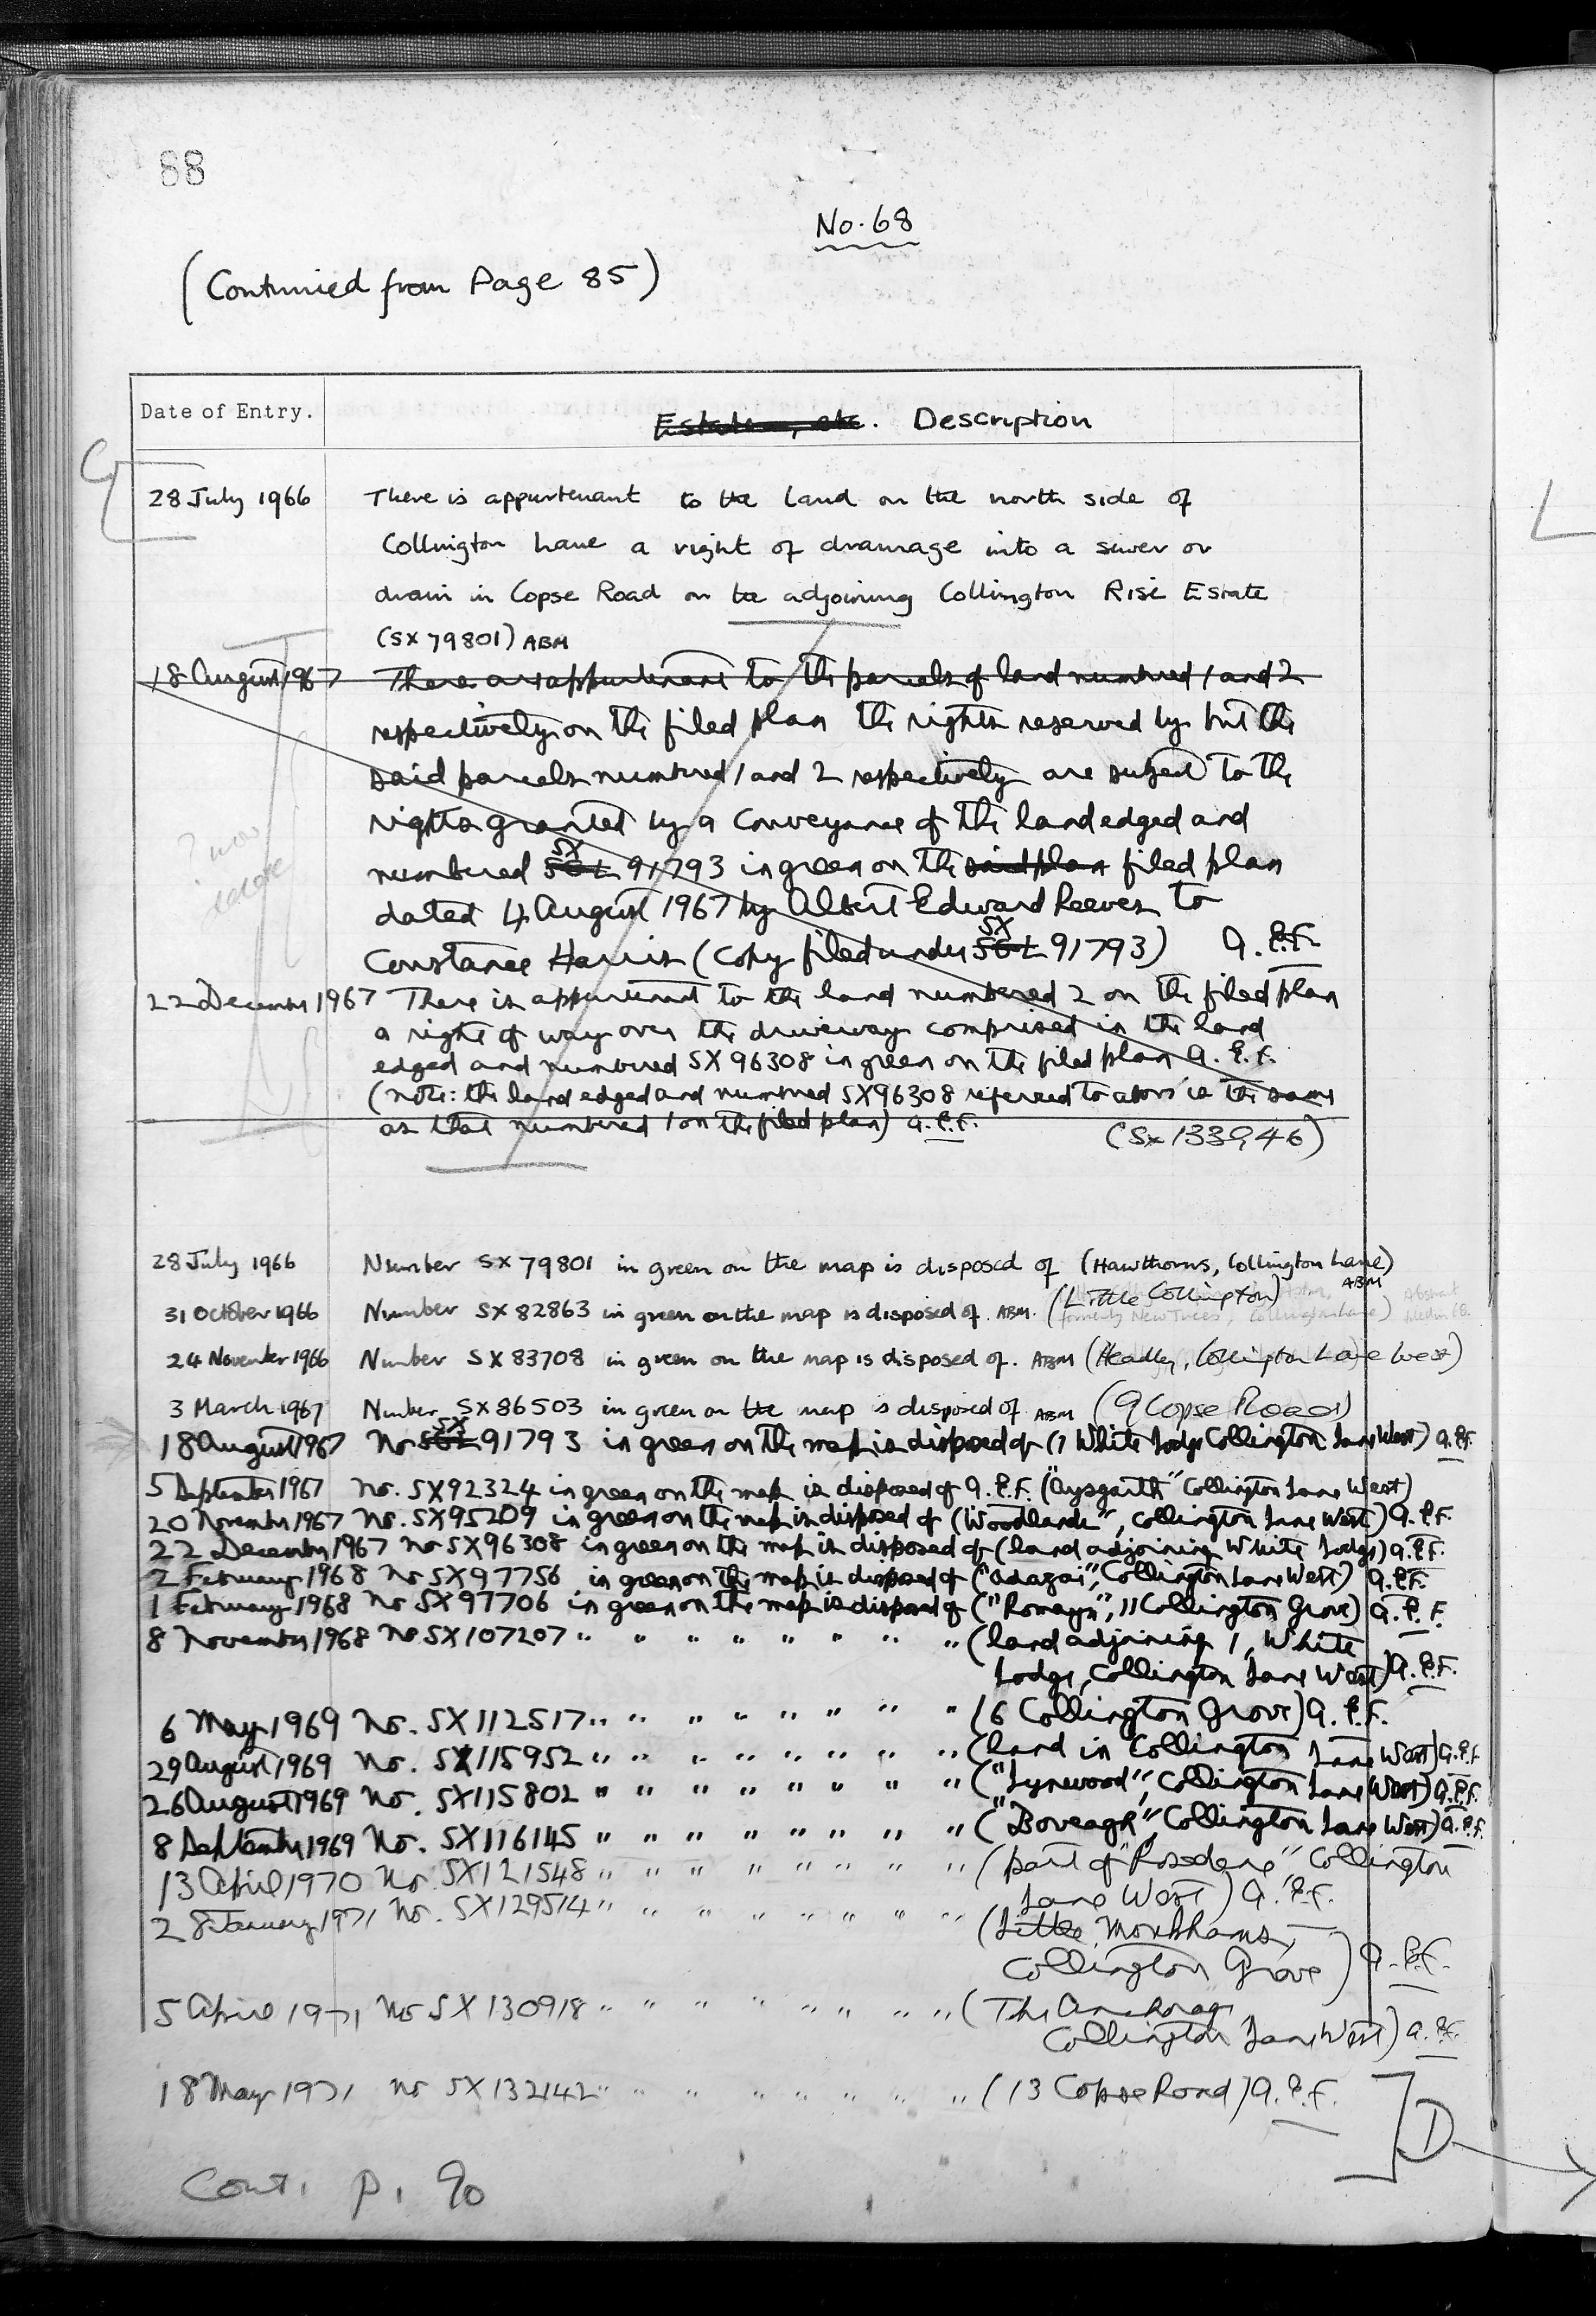 88
No. 68
(Continued from Page 85)
Date of Entry.
Estate, etc. Description
28 July 1966 There is appurtenant to the land on the north side of
Collington Lane a right of drainage into a sewer or
drain in Copse Road on the adjoining Collington Rise Estate
(SX 79801) ABM
18 August 1967 There are appurtenant to the parcels of land numbered 1 and 2
respectively on the filed plan the rights reserved by but the
said parcels numbered 1 and 2 respectively are subject to the
rights granted by a Conveyance of the land edged and
numbered SX 91793 in green on the said plan filed plan
dated 4 August 1967 by Albert Edward Reeves to
Constance Harris (Copy filed under SX 91793) A.P.F.
22 December 1967 There is appurtenant to the land numbered 2 on the filed plan
a right of way over the driveway comprised in the land
edged and numbered SX 96308 in green on the filed plan A.P.F.
(note: the land edged and numbered SX96308 referred to above is the same
as that numbered 1 on the filed plan) A.P.F.
(SX 133946)
28 July 1966 Number SX 79801 in green on the map is disposed of (Hawthorns, Collington Lane) ABM
31 October 1966 Number SX 82863 in green on the map is disposed of. ABM. (Little Collington)
formerly New Trees, Collington Lane) Abstract
24 November 1966 Number SX 83708 in green on the map is disposed of. ABM (Headley, Collington Lane West)
3 March 1967 Number SX 86503 in green on the map is disposed of ABM (9 Copse Road)
18 August 1967 No SX 91793 in green on the map is disposed of (1 White Lodge Collington Lane West) A.P.F.
5 September 1967 No. SX92324 in green on the map is disposed of A.P.F. ("Aysgarth" Collington Lane West)
20 November 1967 No. SX95209 in green on the map is disposed of (Woodlands", Collington Lane West) A.P.F.
22 December 1967 No SX96308 in green on the map is disposed of (land adjoining White Lodge) A.P.F.
2 February 1968 No SX97756 in green on the map is disposed of ("Adazai", Collington Lane West) A.P.F.
1 February 1968 No SX97706 in green on the map is disposed of ("Romayn", 11 Collington Grove) A.P.F.
8 November 1968 No. SX107207 " " " " " " " " (land adjoining 1, White
Lodge, Collington Lane West) A.P.F.
6 May 1969 No. SX112517 " " " " " " " " (6 Collington Grove) A.P.F.
29 August 1969 No. SX115952 " " " " " " " " (land in Collington Lane West) A.P.F.
26 August 1969 No. SX115802 " " " " " " " " ("Lynwood", Collington Lane West) A.P.F.
8 September 1969 No. SX116145 " " " " " " " " ("Boveagh" Collington Lane West) A.P.F.
13 April 1970 No. SX121548 " " " " " " " " (part of "Rosedene", Collington
Lane West) A.P.F.
28 January 1971 No. SX129514 " " " " " " " " (Little Monkhams,
Collington Grove) A.P.F.
5 April 1971 No SX130918 " " " " " " " " (The Anchorage
Collington Lane West) A.P.F.
18 May 1971 No SX132142 " " " " " " " " (13 Copse Road) A.P.F.
D
Cont. p. 90